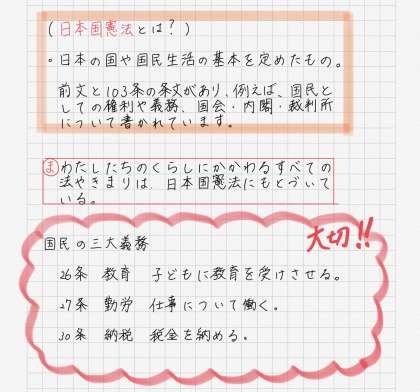 (日本国憲法とは?)
。日本の国や国民生活の基本を定めたもの。
前文と103条の条文があり、例えば、国民と
しての権利や義務、国会・内閣・裁判所
について書かれています。
ま わたしたちのくらしにかかわるすべての
法やきまりは、日本国憲法にもとづいて
いる。
国民の三大義務
大切!!
26条 教育 子どもに教育を受けさせる。
27条 勤労 仕事について働く。
30条 納税 税金を納める。